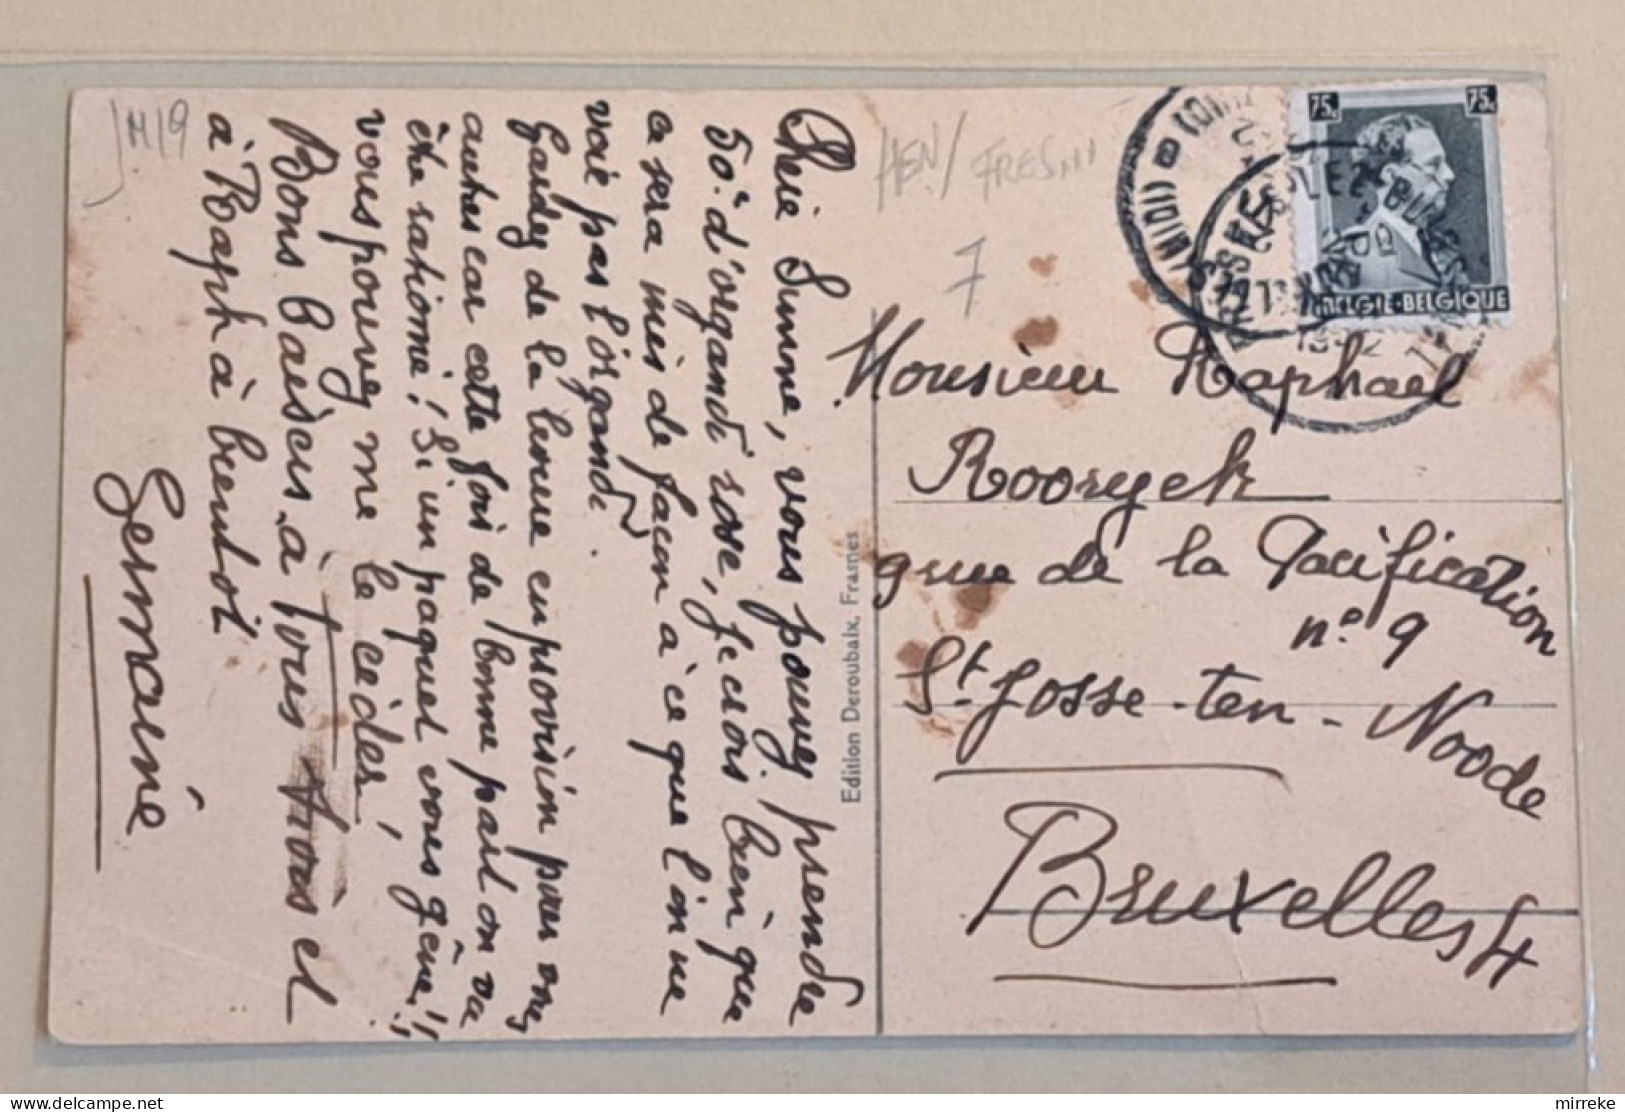 Chère Suzanne, vous pouvez prendre
50c d'organdi rose, je crois bien que
ca sera mis de façon à ce que l'on ne
voie pas l'organdi.
Gardez de la laine en provision pour vos
autres car cette fois de bonne part on va
être rationné! Si un paquet vous gêne!!
vous pouvez me le cèder!
Bons baisers à tous trois et
à Raph à bientôt
Germaine
M19
HEN/
7
75c
75c
BELGIE-BELGIQUE
(MIDI)
Monsieur Raphael
Rooryck
rue de la Pacification
n° 9
St Josse-ten-Noode
Bruxelles 4
Edition Deroubaix, Frasnes
mirreke